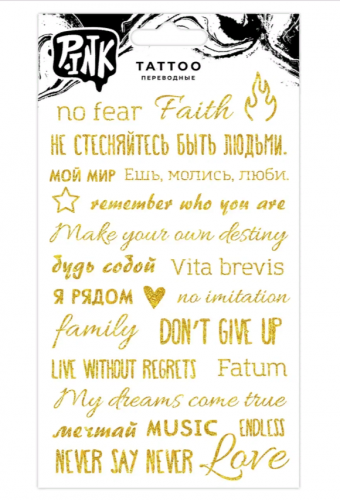 P.INK
TATTOO
ПЕРЕВОДНЫЕ
no fear Faith
НЕ СТЕСНЯЙТЕСЬ БЫТЬ ЛЮДЬМИ.
МОЙ МИР Ешь, молись, люби.
remember who you are
Make your own destiny
будь собой Vita brevis
Я РЯДОМ no imitation
family DON'T GIVE UP
LIVE WITHOUT REGRETS Fatum
My dreams come true
мечтай MUSIC ENDLESS
NEVER SAY NEVER Love